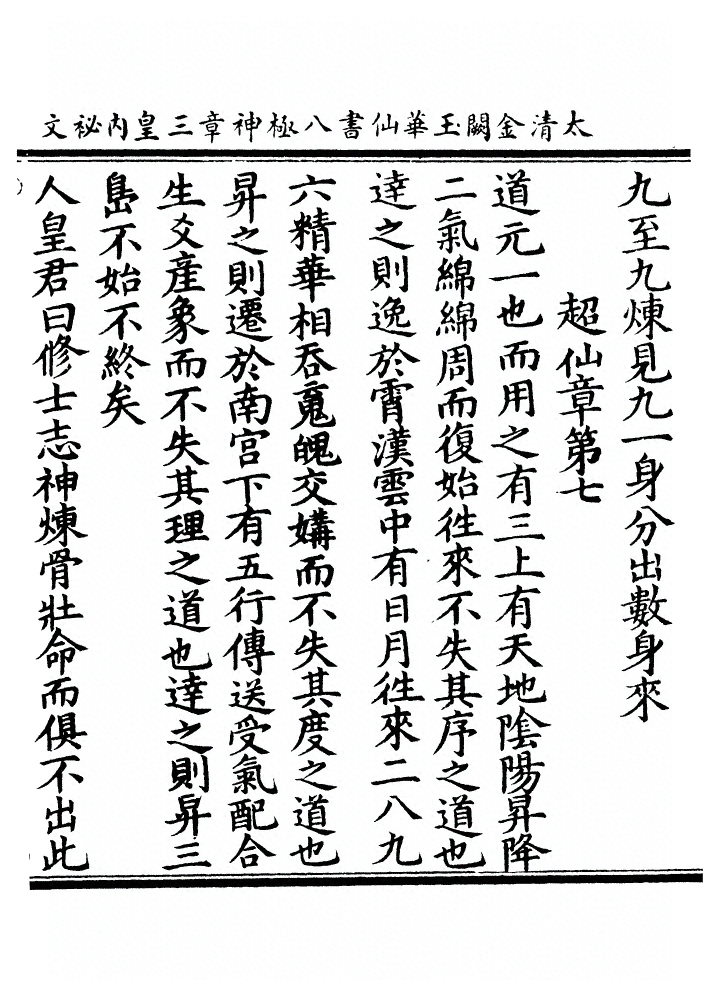 太清金闕玉華仙書八極神章三皇內祕文
九至九煉見九一身分出數身來
超仙章第七
道元一也而用之有三上有天地隂陽昇降
二氣綿綿周而復始徃來不失其序之道也
達之則逸於霄漢雲中有日月徃來二八九
六精華相吞䰟魄交媾而不失其度之道也
昇之則遷於南宫下有五行傳送受氣配合
生爻產象而不失其理之道也達之則昇三
島不始不終矣
人皇君曰修士志神煉骨壯命而俱不出此